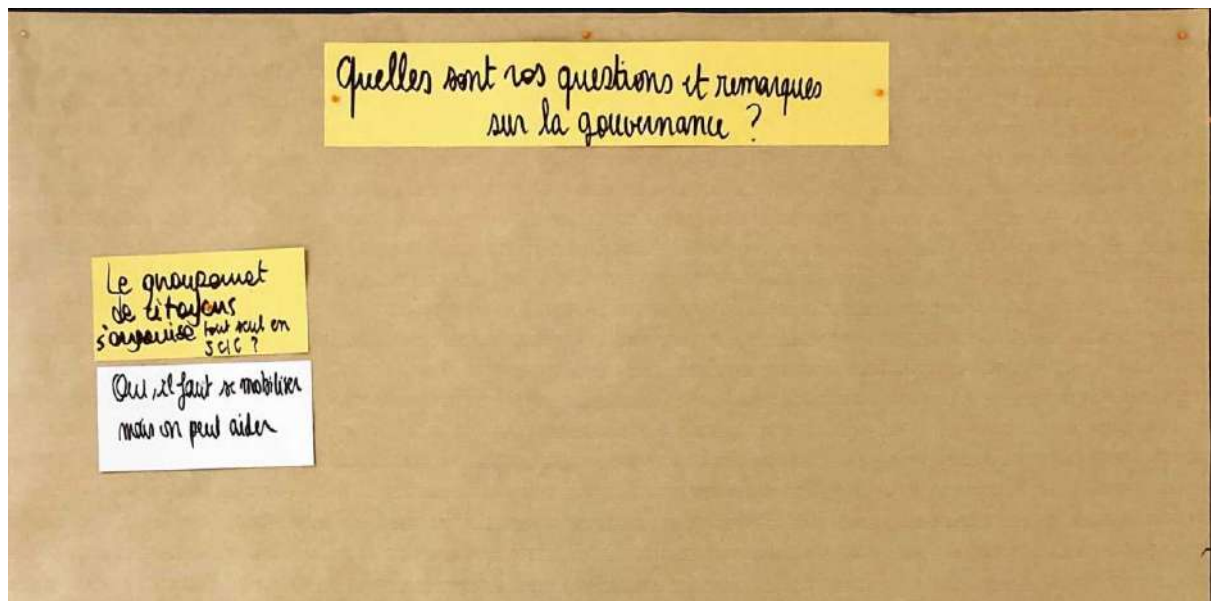 Quelles sont vos questions et remarques
sur la gouvernance ?
Le groupement
de citoyens
s'organise tout seul en
SCIC ?
Oui, il faut se mobiliser
mais on peut aider